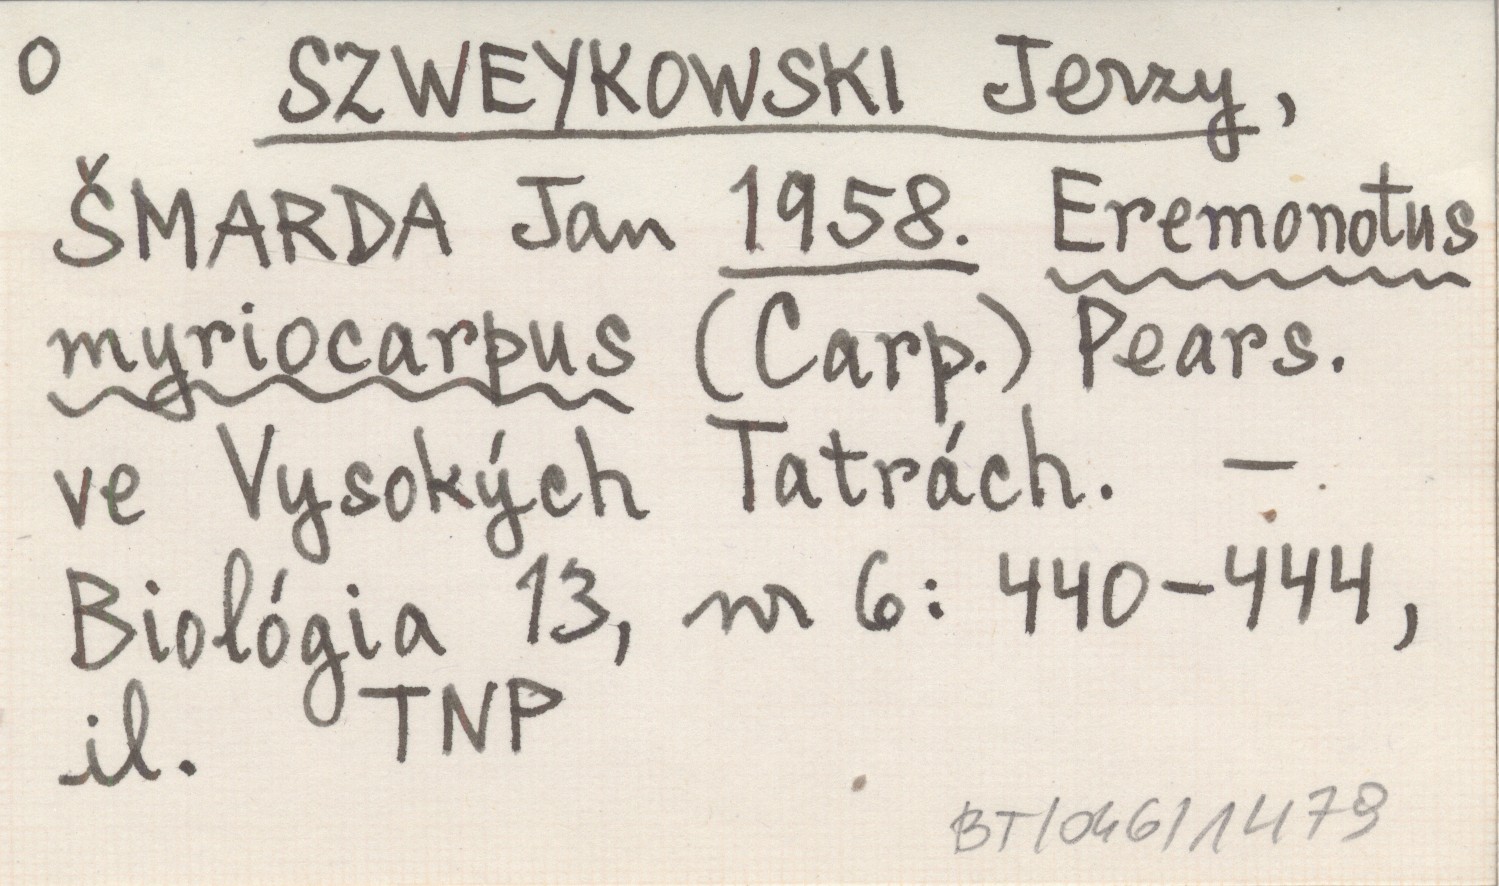 O SZWEYKOWSKI Jerzy,
ŠMARDA Jan 1958. Eremonotus
myriocarpus (Carp.) Pears.
ve Vysokých Tatrách. –
Biológia 13, nr 6: 440–444,
il. TNP
BT/046/1479